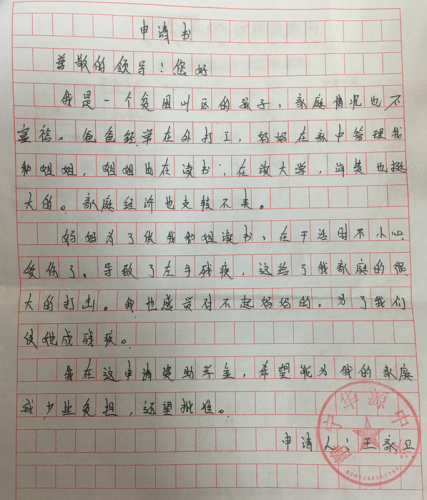 申请书
尊敬的领导！您好
我是一个贫困山区的孩子，家庭情况也不
富裕。爸爸经常在外打工，妈妈在家中管理我
和姐姐，姐姐也在读书，在读大学，消费也挺
大的。家庭经济也支较不来。
妈妈为了供我和姐读书，在干活时不小心
受伤了。导致了左手残疾，这给了我家庭的很
大的打击。我也感觉对不起妈妈的。为了我们
使她成残疾。
我在这申请资助学金，希望能为我的家庭
减少些负担，还望批准。
申请人：王家卫
华源中